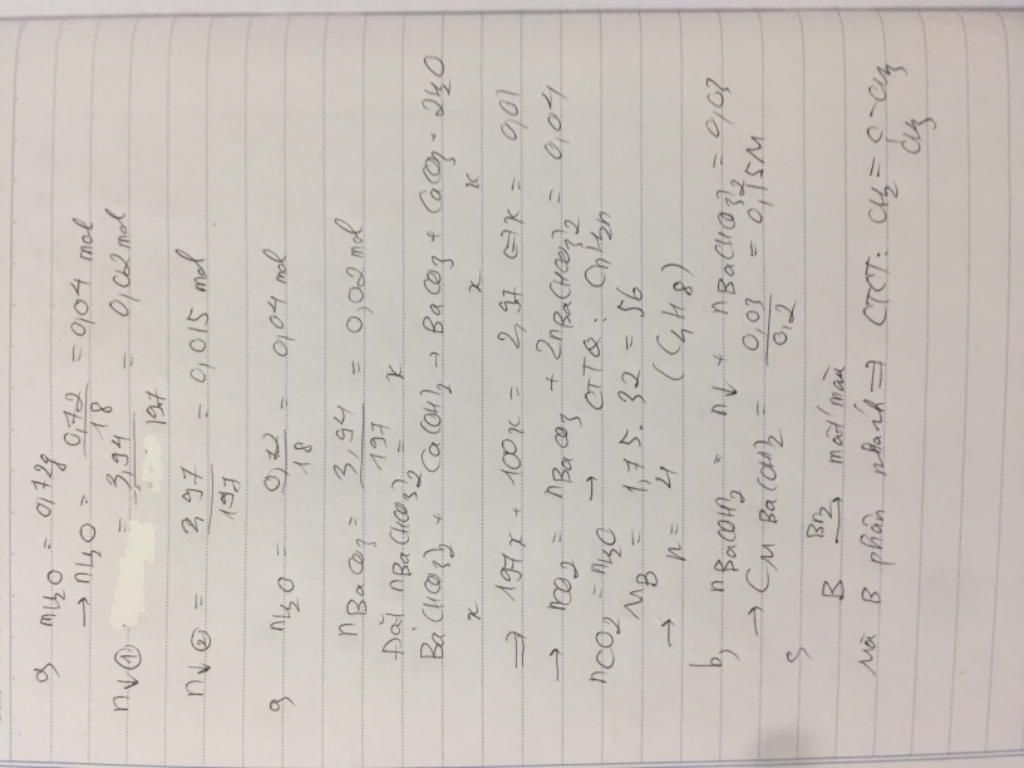 a, mH2O = 0,72g
→ nH2O = 0,72/18 = 0,04 mol
n↓① = 3,94/197 = 0,02 mol
n↓② = 2,97/197 = 0,015 mol
a, nH2O = 0,72/18 = 0,04 mol
nBaCO3 = 3,94/197 = 0,02 mol
Đặt nBa(HCO3)2 = x
Ba(HCO3)2 + Ca(OH)2 → BaCO3 + CaCO3 + 2H2O
x x x
⇒ 197x + 100x = 2,97 ⇔ x = 0,01
→ nCO2 = nBaCO3 + 2nBa(HCO3)2 = 0,04
nCO2 = nH2O → CTTQ: CnH2n
MB = 1,75.32 = 56
→ n = 4 (C4H8)
b, nBa(OH)2 = n↓ + nBa(HCO3)2 = 0,03
→ CM Ba(OH)2 = 0,03/0,2 = 0,15M
B Br2→ mất màu
Mà B phân nhánh ⇒ CTCT: CH2 = C - CH3
CH3